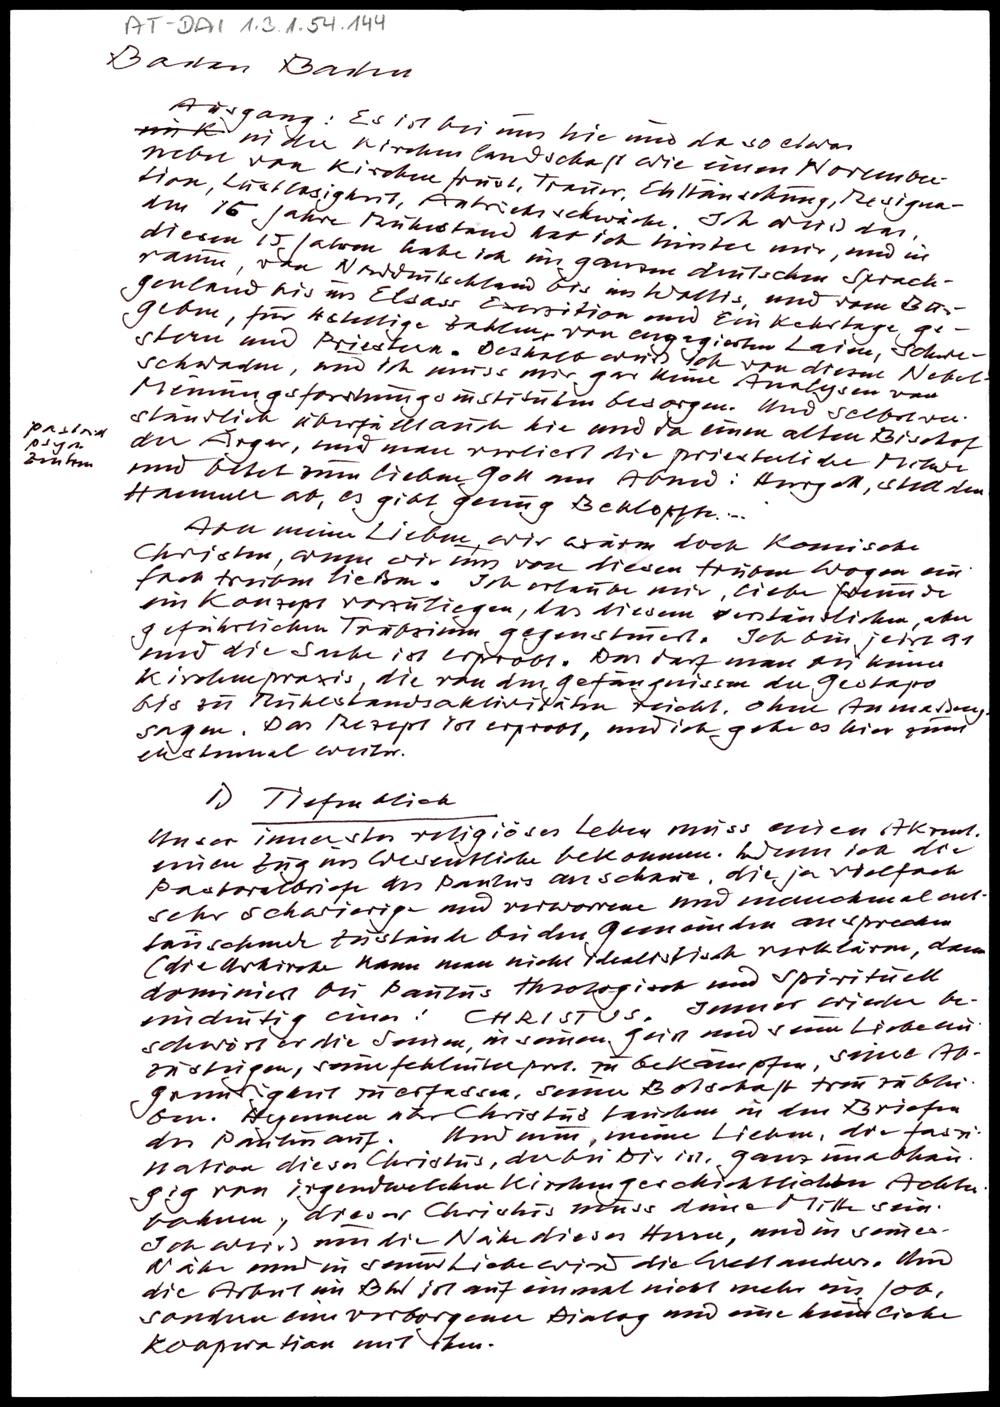 AT-DAI 1.3.1.54.144
Baden Baden
Ausgang: Es ist bei uns hie und da so etwas
in der Kirchenlandschaft wie einen November-
nebel von Kirchenfrust, Trauer, Enttäuschung, Resigna-
tion, Lustlosigkeit, Antriebsschwäche. Ich weiß das,
denn 15 Jahre Ruhestand hat ich hinter mir, und in
diesen 15 Jahren habe ich im ganzen deutschen Sprach-
raum, von Norddeutschland bis ins Wallis, und vom Bur-
genland bis ins Elsass Exerzitien und Einkehrtage ge-
geben, für 4stellige Zahlen von engagierten Laien, Schwe-
stern und Priestern. Deshalb weiß ich von diesen Nebel-
schwaden, und ich muss mir gar keine Analysen von
Meinungsforschungsinstituten besorgen. Und selbstver-
ständlich überfällt auch hie und da einen alten Bischof
der Ärger, und man verliert die priesterliche Milde
und betet zum lieben Gott am Abend: Herrgott, stell den
Hammer ab, es gibt genug Bekloppte...
pastoral
psych
Zentrum
Aber meine Lieben, wir wären doch komische
Christen, wenn wir uns von diesen trüben Wogen ein-
fach treiben ließen. Ich erlaube mir, liebe Freunde
ein Konzept vorzulegen, das diesem verständlichen, aber
gefährlichen Trübsinn gegensteuert. Ich bin jetzt 91
und die Sache ist erprobt. Das darf man bei einer
Kirchenpraxis, die von den Gefängnissen der Gestapo
bis zu Ruhestandsaktivitäten reicht, ohne Anmassung
sagen. Das Rezept ist erprobt, und ich gebe es hier zum
erstenmal weiter.
1) Tiefenblick
Unser innerstes religiöses Leben muss einen Akzent,
einen Zug ins Wesentliche bekommen. Wenn ich die
Pastoralbriefe des Paulus anschaue, die ja vielfach
sehr schwierige und verworrene und manchmal ent-
täuschende Zustände bei den Gemeinden ansprechen
(die Urkirche kann man nicht idealistisch verklären, dann
dominiert bei Paulus theologisch und spirituell
eindeutig einer: CHRISTUS. Immer wieder be-
schwört er die Seinen, in seinen Geist und seine Liebe ein-
zusteigen, zu bekämpfen, seine Ab-
gründigkeit zu erfassen, seiner Botschaft treu zu blei-
ben. Hymnen über Christus tauchen in den Briefen
des Paulus auf. Und nun, meine Lieben, die Faszi-
nation dieses Christus, der bei Dir ist, ganz unabhän-
gig von irgendwelchen kirchengeschichtlichen Achter-
bahnen, dieser Christus muss deine Mitte sein.
Ich weiß um die Nähe dieses Herrn, und in seiner
Nähe und in seiner Liebe wird die Welt anders. Und
die Arbeit im BhW ist auf einmal nicht mehr ein Job,
sondern ein verborgener Dialog und eine heimliche
Kooperation mit ihm.